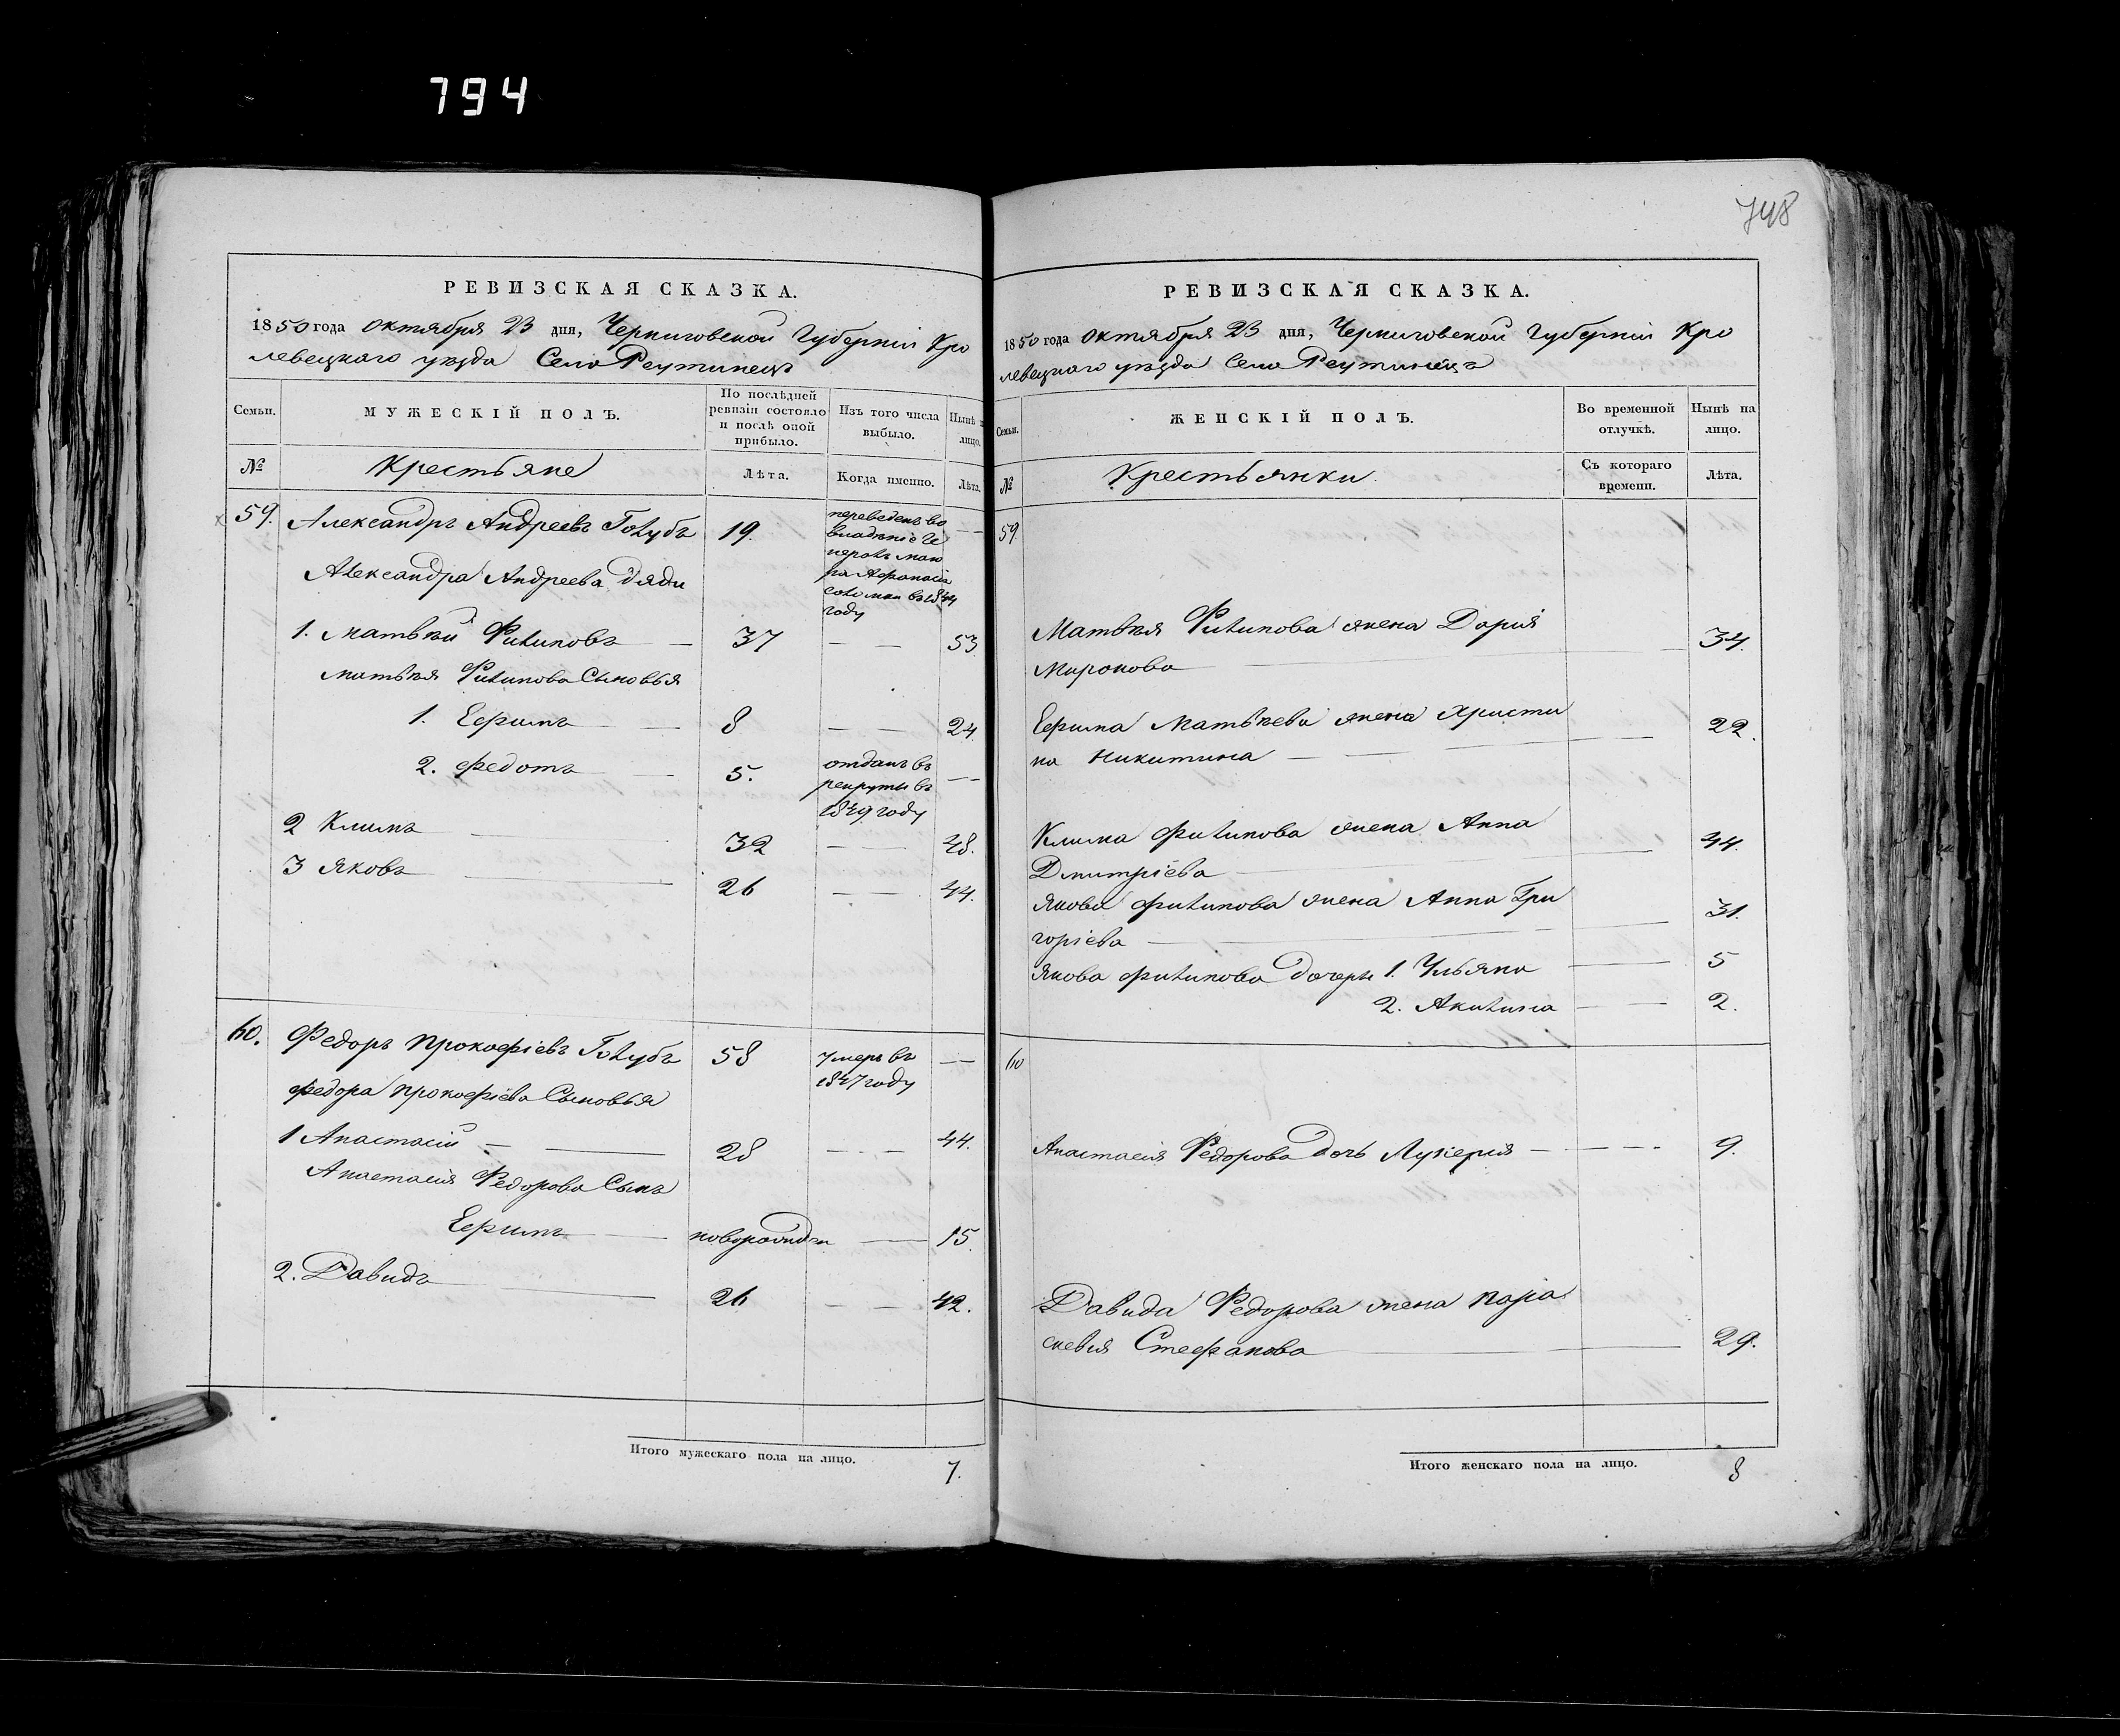 794
748
РЕВИЗСКАЯ СКАЗКА.
1850 года Октября 23 дня, Черниговской Губерніи Кро
левецкаго уезда Село Реутинецъ
Семьи.
МУЖЕСКІЙ ПОЛЪ.
По послѣдней
ревизіи состояло
и послѣ оной
прибыло.
Изъ того числа
выбыло.
Нынѣ
лицо.
№
Крестьяне
Лѣта.
Когда именно.
Лѣта.
59. Александръ Андреевъ Голубъ 19. переведенъ во
владѣніе Ге
нералъ маіо
ра Афанасія
в 1844
году
Александра Андреева дяди
1. Матвѣй Филиповъ — 37 — — 53
Матвѣя Филипова Сыновья
1. Ефимъ — 8 — — 24.
2. Федотъ — 5. отданъ въ —
рекруты въ
1849 году
2 Климъ — 32 — — 48.
3 Яковъ — 26 — — 44.
60. Федоръ Прокофіевъ Голубъ 58 Умеръ въ —
1847 году
Федора Прокофіева Сыновья
1 Анастасій — — 28 — - — 44.
Анастасія Федорова Сынъ
Ефимъ — новорожден — 15.
2. Давидъ — 26 — — 42.
Итого мужескаго пола на лицо.
7.
РЕВИЗСКАЯ СКАЗКА.
1850 года Октября 23 дня, Черниговской Губерніи Кро
левецкаго уезда Село Реутинецъ
Семьи.
ЖЕНСКІЙ ПОЛЪ.
Во временной
отлучкѣ.
Нынѣ на
лицо.
№
Крестьянки
Съ котораго
времени.
Лѣта.
59.
Матвѣя Филипова жена Дарія
Миронова — — 34.
Ефима Матвѣева жена Христи
на Никитина — — 22.
Клима Филипова жена Анна
Дмитріева — — 44.
Якова Филипова жена Анна Гри
горіева — — 31.
Якова Филипова дочери 1. Ульяна — — 5
2. Акилина — — 2.
60
Анастасія Федорова дочь Лукерія — — — 9.
Давида Федорова жена Пара
скевія Стефанова — 29.
Итого женскаго пола на лицо.
8